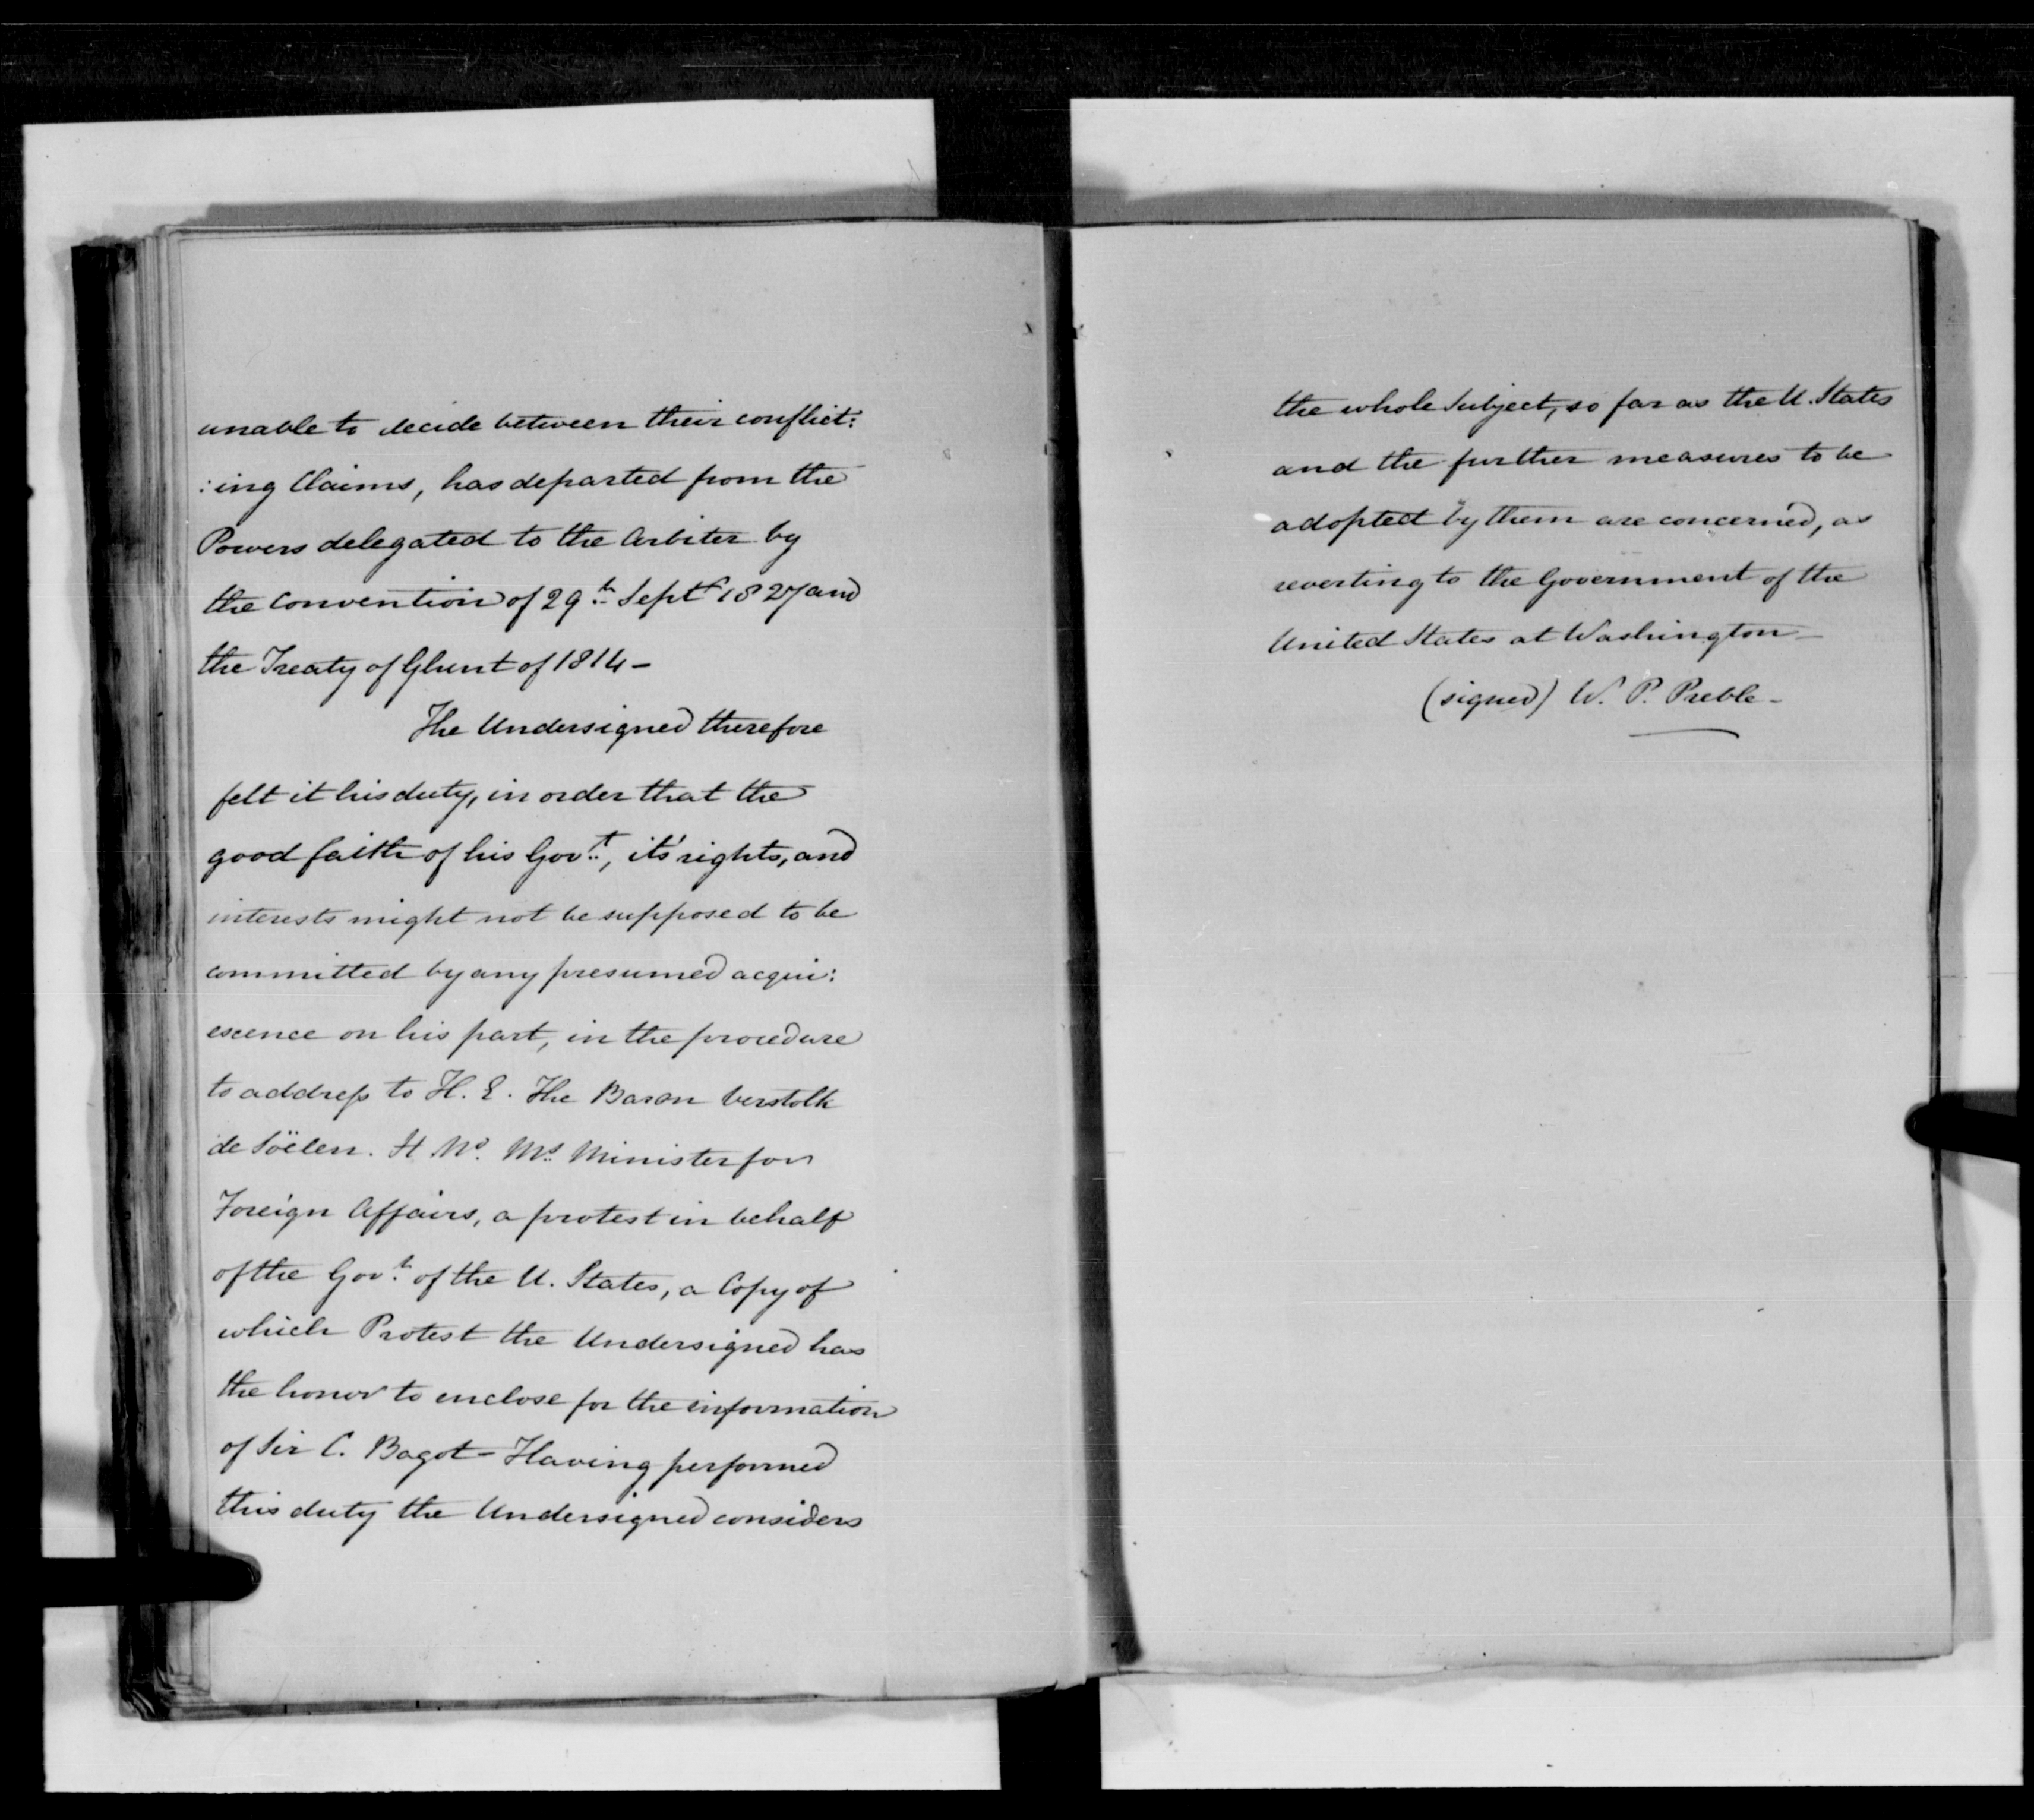 unable to decide between their conflict:
:ing Claims, has departed from the
Powers delegated to the Arbiter by
the Convention of 29th Septr 1827 and
the Treaty of Ghent of 1814 –
The Undersigned therefore
felt it his duty, in order that the
good faith of his Govt., it's rights, and
interests might not be supposed to be
committed by any presumed acqui:
escence on his part, in the procedure
to address to H. E. The Baron Verstolk
de Söelen. H. Ns. Ms. Minister for
Foreign Affairs, a protest in behalf
of the Govt. of the U. States, a Copy of
which Protest the Undersigned has
the honor to enclose for the information
of Sir C. Bagot – Having performed
this duty the Undersigned considers
the whole Subject, so far as the U. States
and the further measures to be
adopted by them are concerned, as
reverting to the Government of the
United States at Washington –
(signed) W. P. Preble –